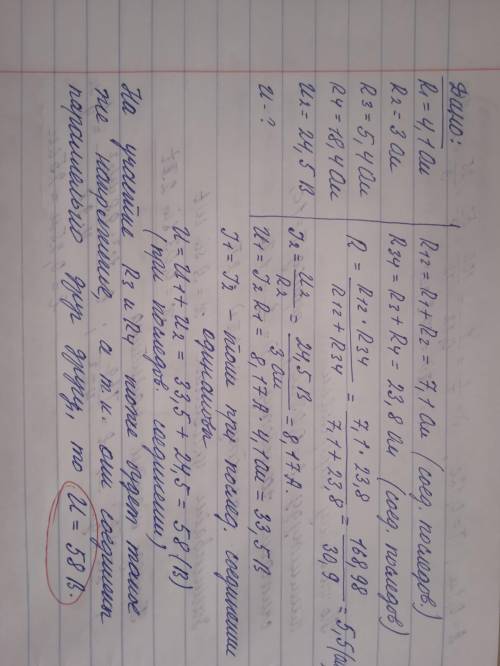 Дано:
R1 = 4,1 Ом
R2 = 3 Ом
R3 = 5,4 Ом
R4 = 18,4 Ом
U2 = 24,5 В
U - ?
R12 = R1 + R2 = 7,1 Ом (соед. последов.)
R34 = R3 + R4 = 23,8 Ом (соед. последов)
R = R12 · R34 / R12 + R34 = 7,1 · 23,8 / 7,1 + 23,8 = 168,98 / 30,9 = 5,5 (Ом
I2 = U2 / R2 = 24,5 В / 3 Ом = 8,17 А.
U1 = I2 R1 = 8,17 А · 4,1 Ом = 33,5 В
I1 = I2 - токи при послед. соединении
одинаковы
U = U1 + U2 = 33,5 + 24,5 = 58 (В)
(при последов. соединении)
На участке R3 и R4 тоже будет такое
же напряжение, а т.к. они соединены
параллельно друг другу, то U = 58 В.